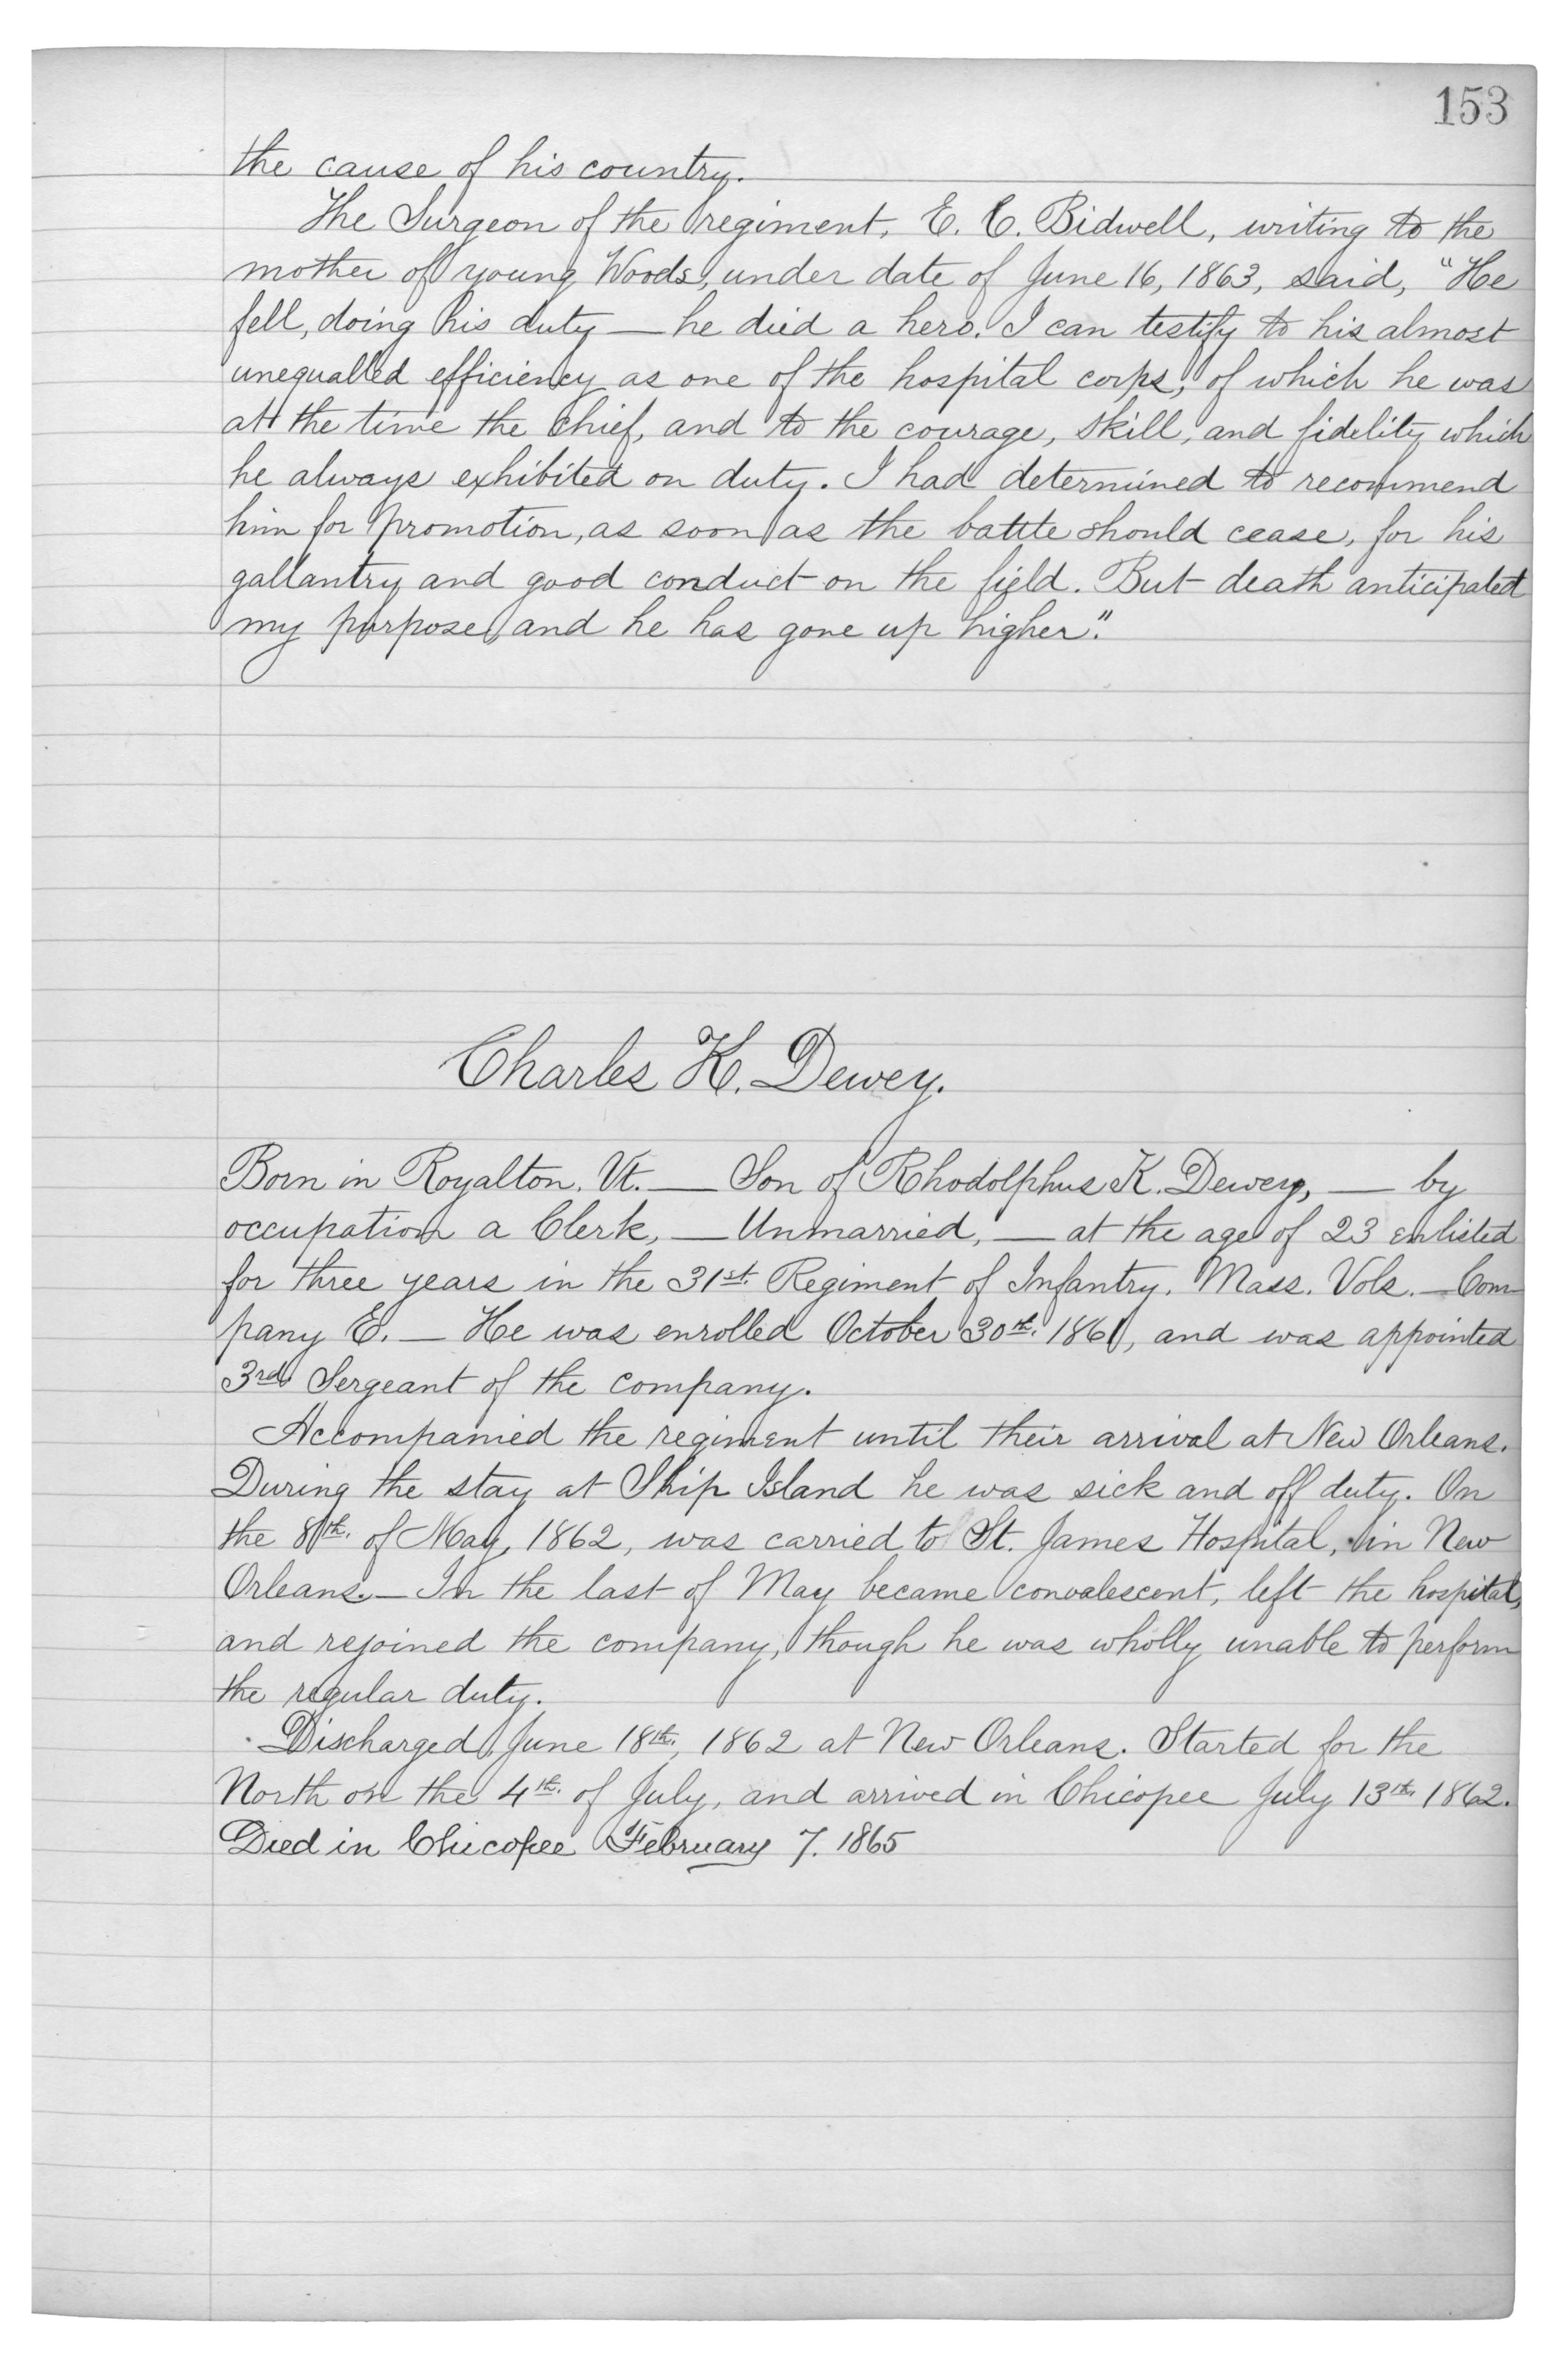 153
the cause of his country.
The Surgeon of the regiment, E. C. Bidwell, writing to the
mother of young Woods, under date of June 16, 1863, said, "He
fell, doing his duty — he died a hero. I can testify to his almost
unequalled efficiency as one of the hospital corps, of which he was
at the time the chief, and to the courage, skill, and fidelity which
he always exhibited on duty. I had determined to recommend
him for promotion, as soon as the battle should cease, for his
gallantry and good conduct on the field. But death anticipated
my purpose, and he has gone up higher."
Charles K. Dewey.
Born in Royalton, Vt. — Son of Rhodolphus K. Dewey, — by
occupation a Clerk, — Unmarried, — at the age of 23 enlisted
for three years in the 31st. Regiment of Infantry, Mass. Vols. — Com
pany E. — He was enrolled October 30th. 1861, and was appointed
3rd. Sergeant of the company.
Accompanied the regiment until their arrival at New Orleans.
During the stay at Ship Island he was sick and off duty. On
the 8th. of May, 1862, was carried to St. James Hospital, in New
Orleans. — In the last of May became convalescent, left the hospital,
and rejoined the company, though he was wholly unable to perform
the regular duty.
Discharged, June 18th, 1862 at New Orleans. Started for the
North on the 4th. of July, and arrived in Chicopee July 13th. 1862.
Died in Chicopee February 7. 1865